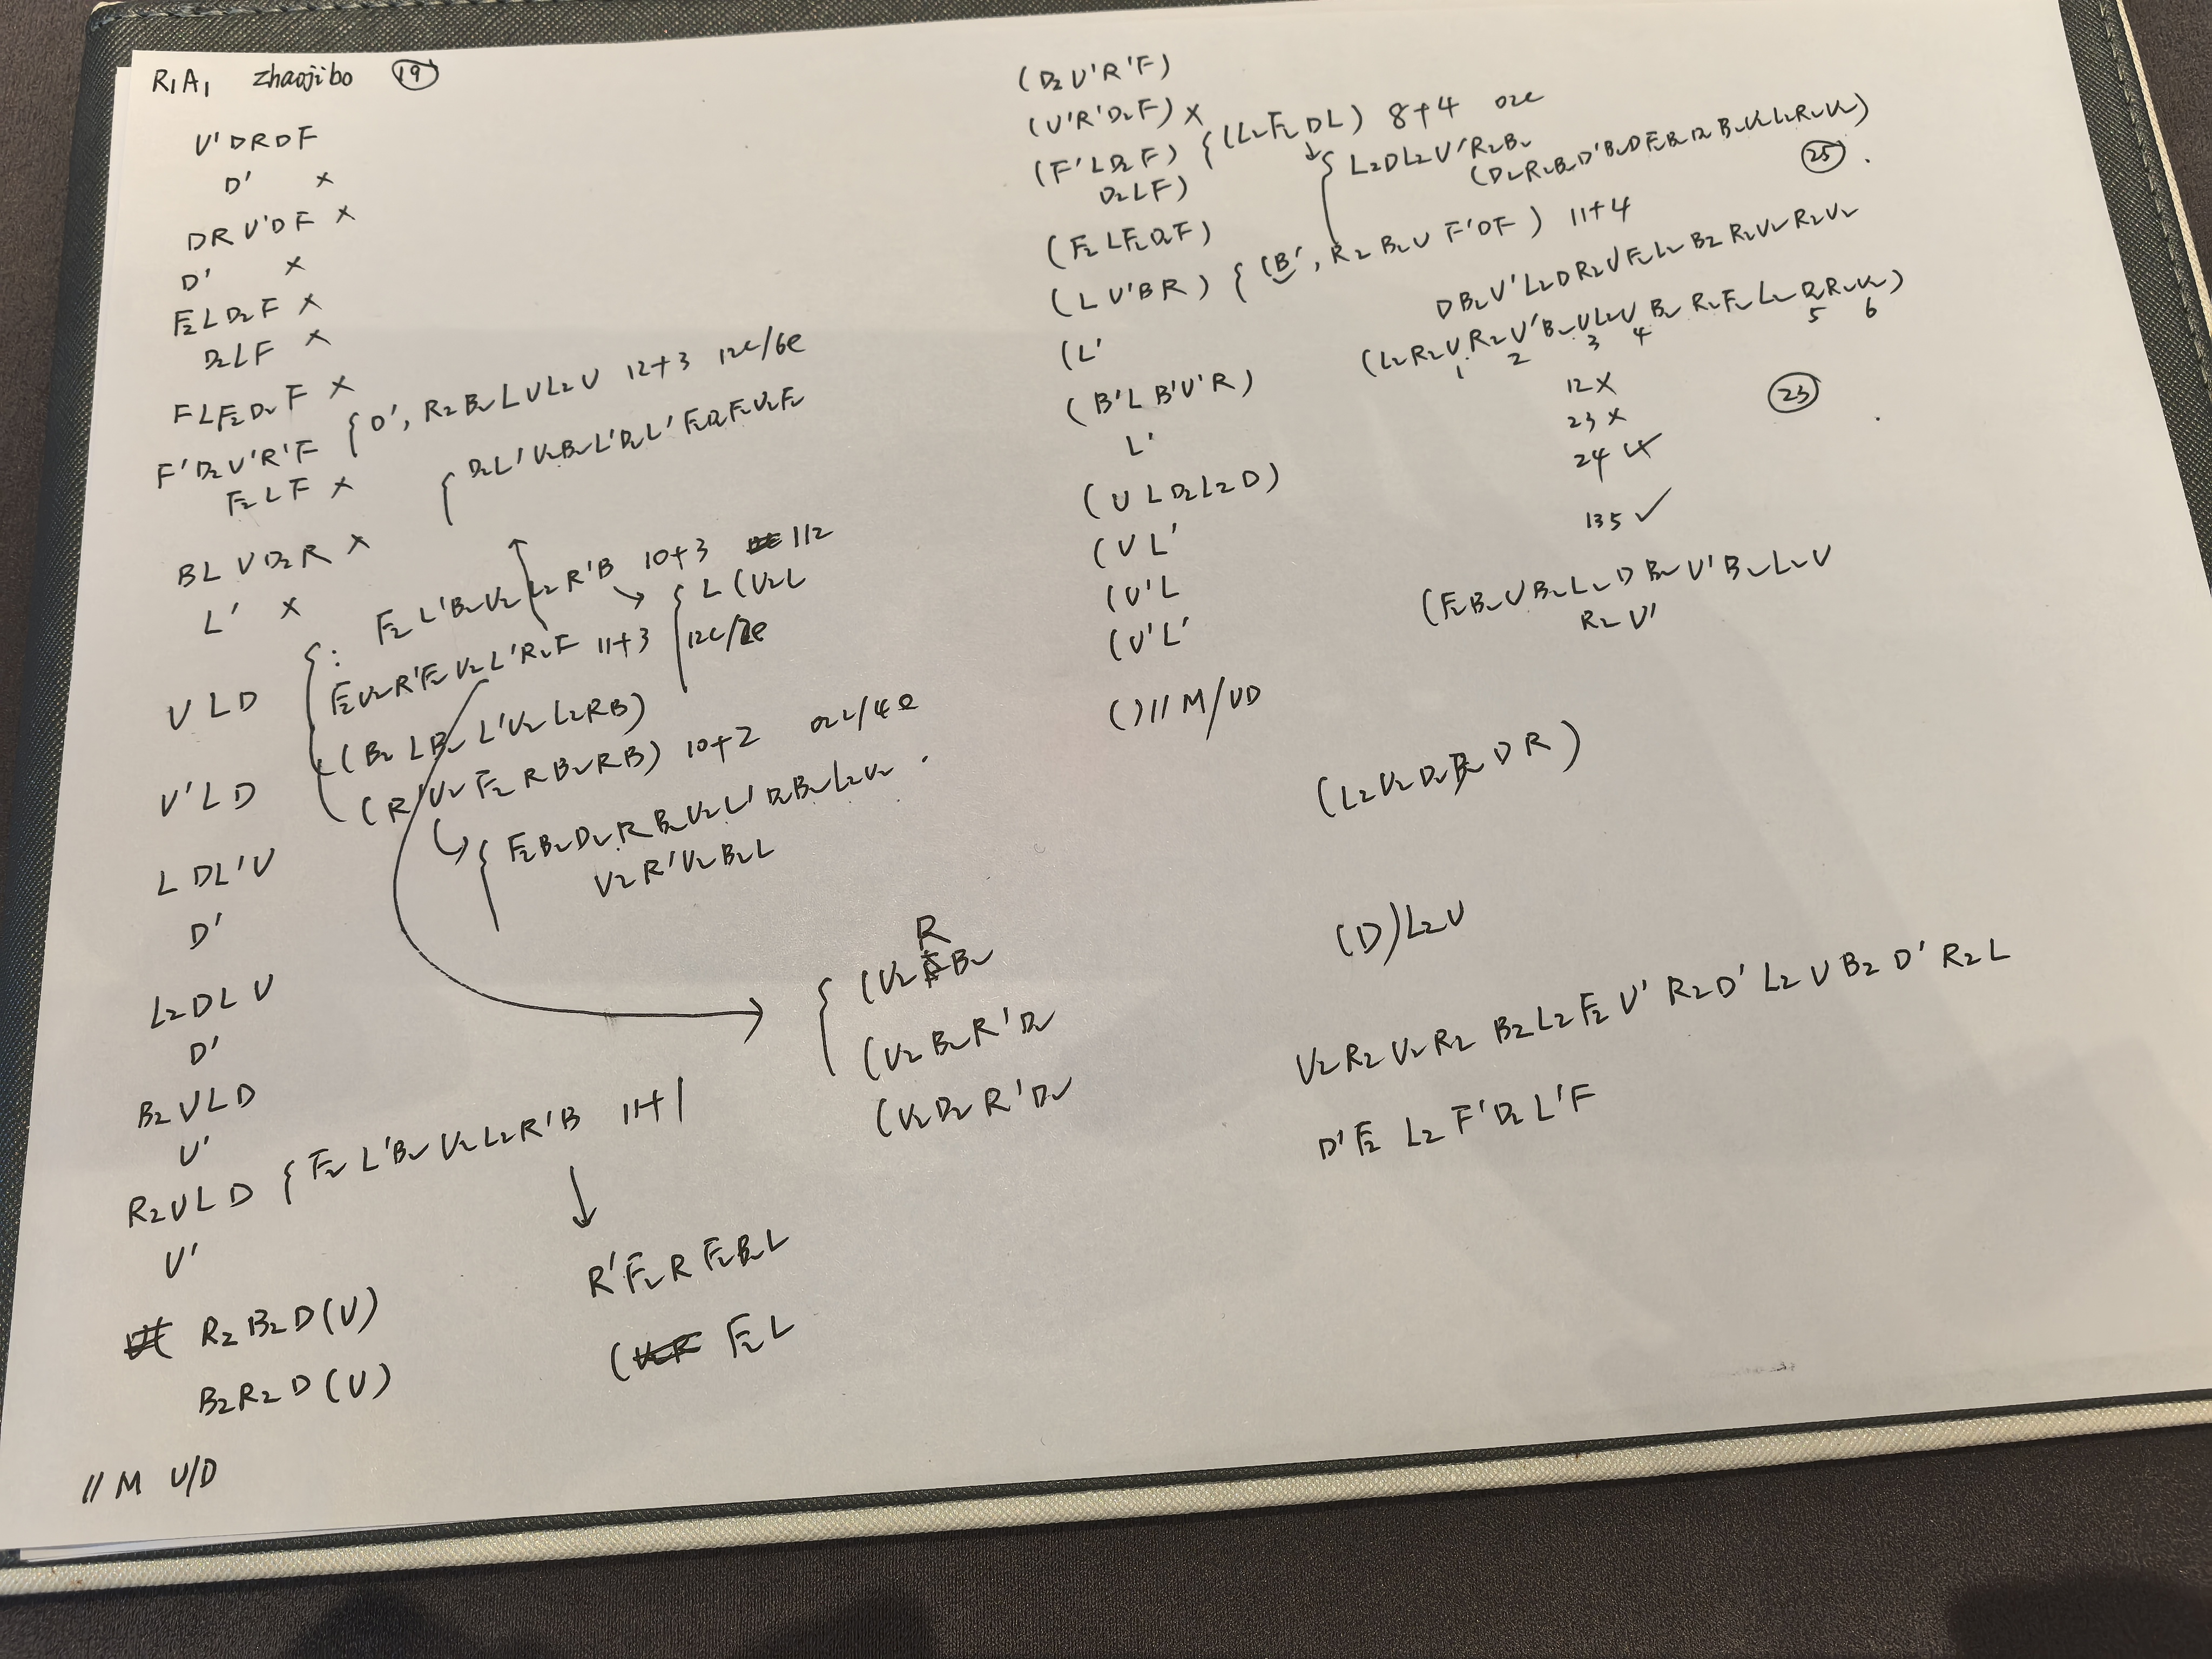 R1A1 zhaojibo 19
U'DRDF
D' x
DRU'DF x
D' x
F2LD2F x
D2LF x
FLF2D2F x
F'D2U'R'F { D', R2B2LUL2U 12+3 12c/6e
F2LF x
{ D2L'U2B2L'D2L'F2D2F2U2F2
BLUD2R x
L' x
ULD { : F2L'B2U2L2R'B 10+3 112
{ L(U2L
F2U2R'F2U2L'R2F 11+3 12c/2e
(B2LB2L'U2L2RB)
U'LD (R'U2F2RB2RB) 10+2 02c/4e
{ F2B2D2RB2U2L'D2B2L2U2 .
U2R'U2B2L
LDL'U
D'
L2DLU
D'
B2ULD
U'
R2ULD { F2L'B2U2L2R'B 11+1
U'
R'F2RF2B2L
R2B2D(U)
( F2L
B2R2D(U)
// M U/D
R
{ (U2 B2
(U2B2R'D2
(U2D2R'D2
(D2U'R'F)
(U'R'D2F) x
(F'LD2F) { (L2F2DL) 8+4 02e
D2LF)
{ L2DL2U'R2B2
(D2R2B2D'B2DF2B2D2B2U2L2R2U2)
25 .
(F2LF2D2F)
(LU'BR) { (B', R2B2UF'DF) 11+4
DB2U'L2DR2UF2L2B2R2U2R2U2
(L'
(L2R2UR2U'B2UL2UB2R2F2L2D2R2U2)
1 2 3 4 5 6
(B'LB'U'R)
12 x
L'
23 x
23 .
24 x
(ULD2L2D)
135 ✓
(UL'
(U'L
(F2B2UB2L2DB2U'B2L2U
R2U'
(U'L'
( ) // M/UD
(L2U2D2B2DR)
(D)L2U
U2R2U2R2B2L2F2U'R2D'L2UB2D'R2L
D'F2L2F'D2L'F